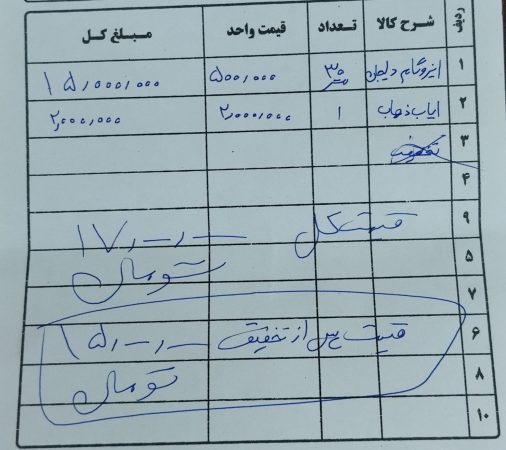 ردیف شرح کالا تعداد قیمت واحد مبلغ کل
۱ ایزوگام دلیجان ۳۰ ۵۰۰,۰۰۰ ۱۵,۰۰۰,۰۰۰
۲ ایاب ذهاب ۱ ۲,۰۰۰,۰۰۰ ۲,۰۰۰,۰۰۰
۳ تخفیف
۴
۹ قیمت کل ۱۷,۰۰۰,۰۰۰
۵ تومان
۷
۶ قیمت پس از تخفیف ۱۵,۰۰۰,۰۰۰
۸ تومان
۱۰